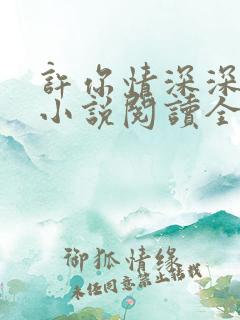 許你情深深
小說閱讀全
御狐情緣
未經同意禁止轉載